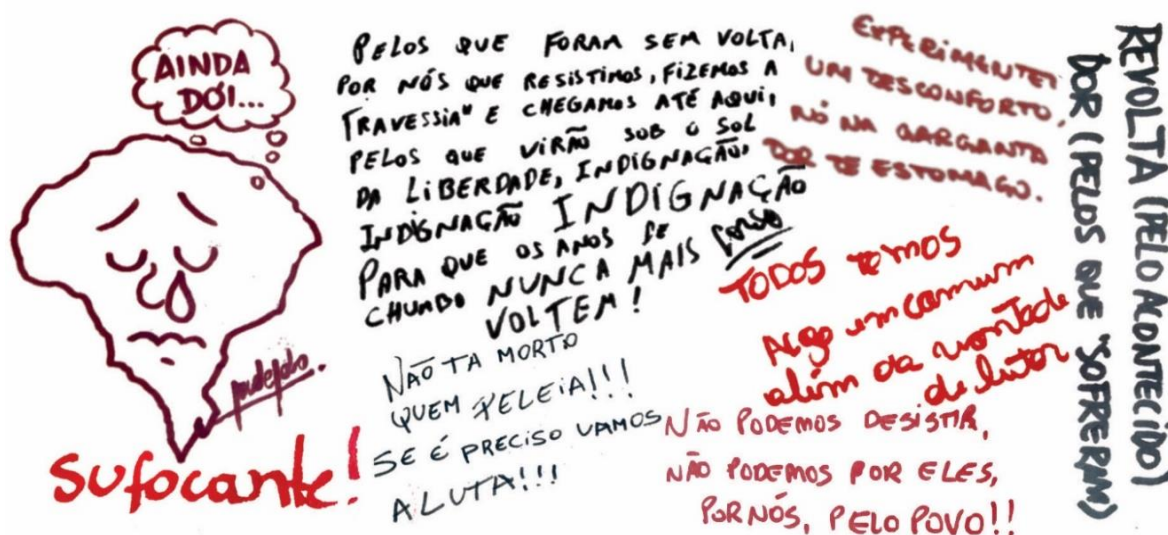 AINDA
DÓI...
Sufocante!
PELOS QUE FORAM SEM VOLTA,
POR NÓS QUE RESISTIMOS, FIZEMOS A
TRAVESSIA" E CHEGAMOS ATÉ AQUI,
PELOS QUE VIRÃO SOB O SOL
DA LIBERDADE, INDIGNAÇÃO,
INDIGNAÇÃO INDIGNAÇÃO
PARA QUE OS ANOS DE
CHUMBO NUNCA MAIS
VOLTEM!
NÃO TA MORTO
QUEM PELEIA!!!
SE É PRECISO VAMOS
A LUTA!!!
EXPERIMENTEI
UM DESCONFORTO,
NÓ NA GARGANTA
DOR DE ESTOMAGO.
TODOS TEMOS
Algo em comum
além da vontade
de lutar
NÃO PODEMOS DESISTIR,
NÃO PODEMOS POR ELES,
POR NÓS, PELO POVO!!
REVOLTA (PELO ACONTECIDO)
DOR (PELOS QUE "SOFRERAM)